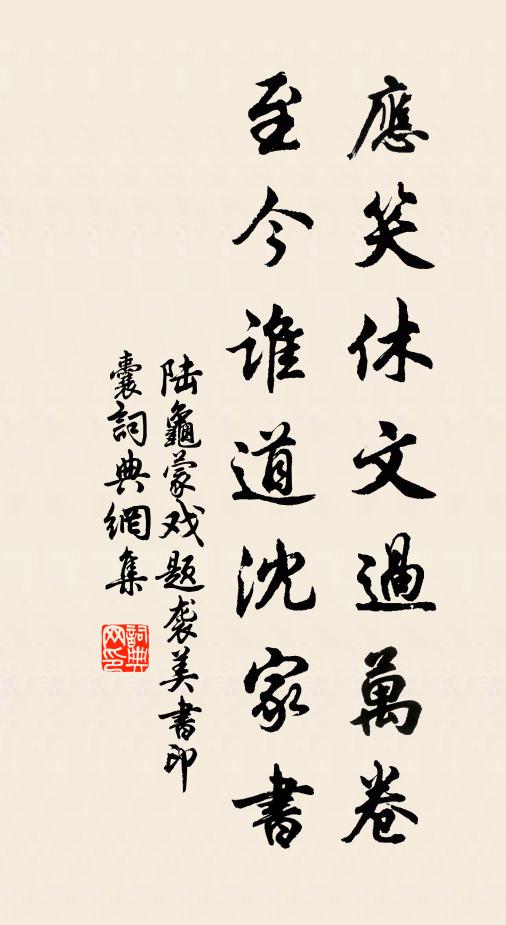 應笑休文過萬卷
至今誰道沈家書
陆龜蒙戏題袭美書印
囊詞典網集
詞典網印